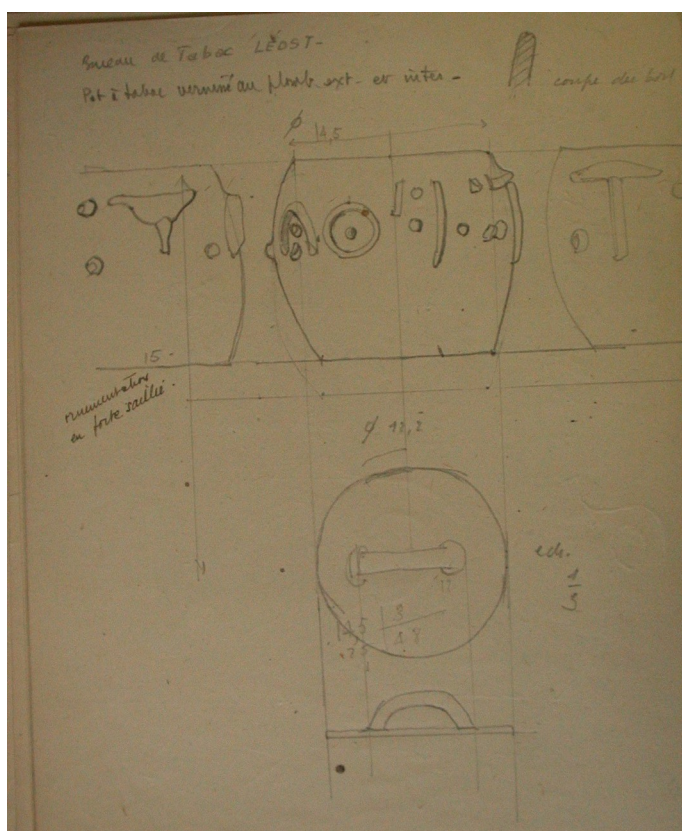 Bureau de Tabac LÉOST-
Pot à tabac vernissé au plomb ext. et intér -
coupe du bord
ϕ
14,5
15 -
ornementation
en forte saillie.
ϕ 12,2
ech.
1/3
14,5 | 3
25 4.8